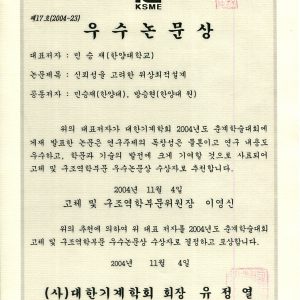 KSME
제17호(2004-23)
우수논문상
대표저자 : 민 승 재(한양대학교)
논문제목 : 신뢰성을 고려한 위상최적설계
공동저자 : 민승재(한양대), 방승현(한양대 원)
위의 대표저자가 대한기계학회 2004년도 춘계학술대회에
게재 발표한 논문은 연구주제의 독창성은 물론이고 연구 내용도
우수하고, 학문과 기술의 발전에 크게 기여할 것으로 사료되어
고체 및 구조역학부문 우수논문상 수상자로 추천합니다.
2004년 11월 4일
고체 및 구조역학부문위원장 이영신
위의 추천에 의하여 위 대표 저자를 2004년도 춘계학술대회
고체 및 구조역학부문 우수논문상 수상자로 결정하고 포상합니다.
2004년 11월 4일
(사)대한기계학회 회장 유정열